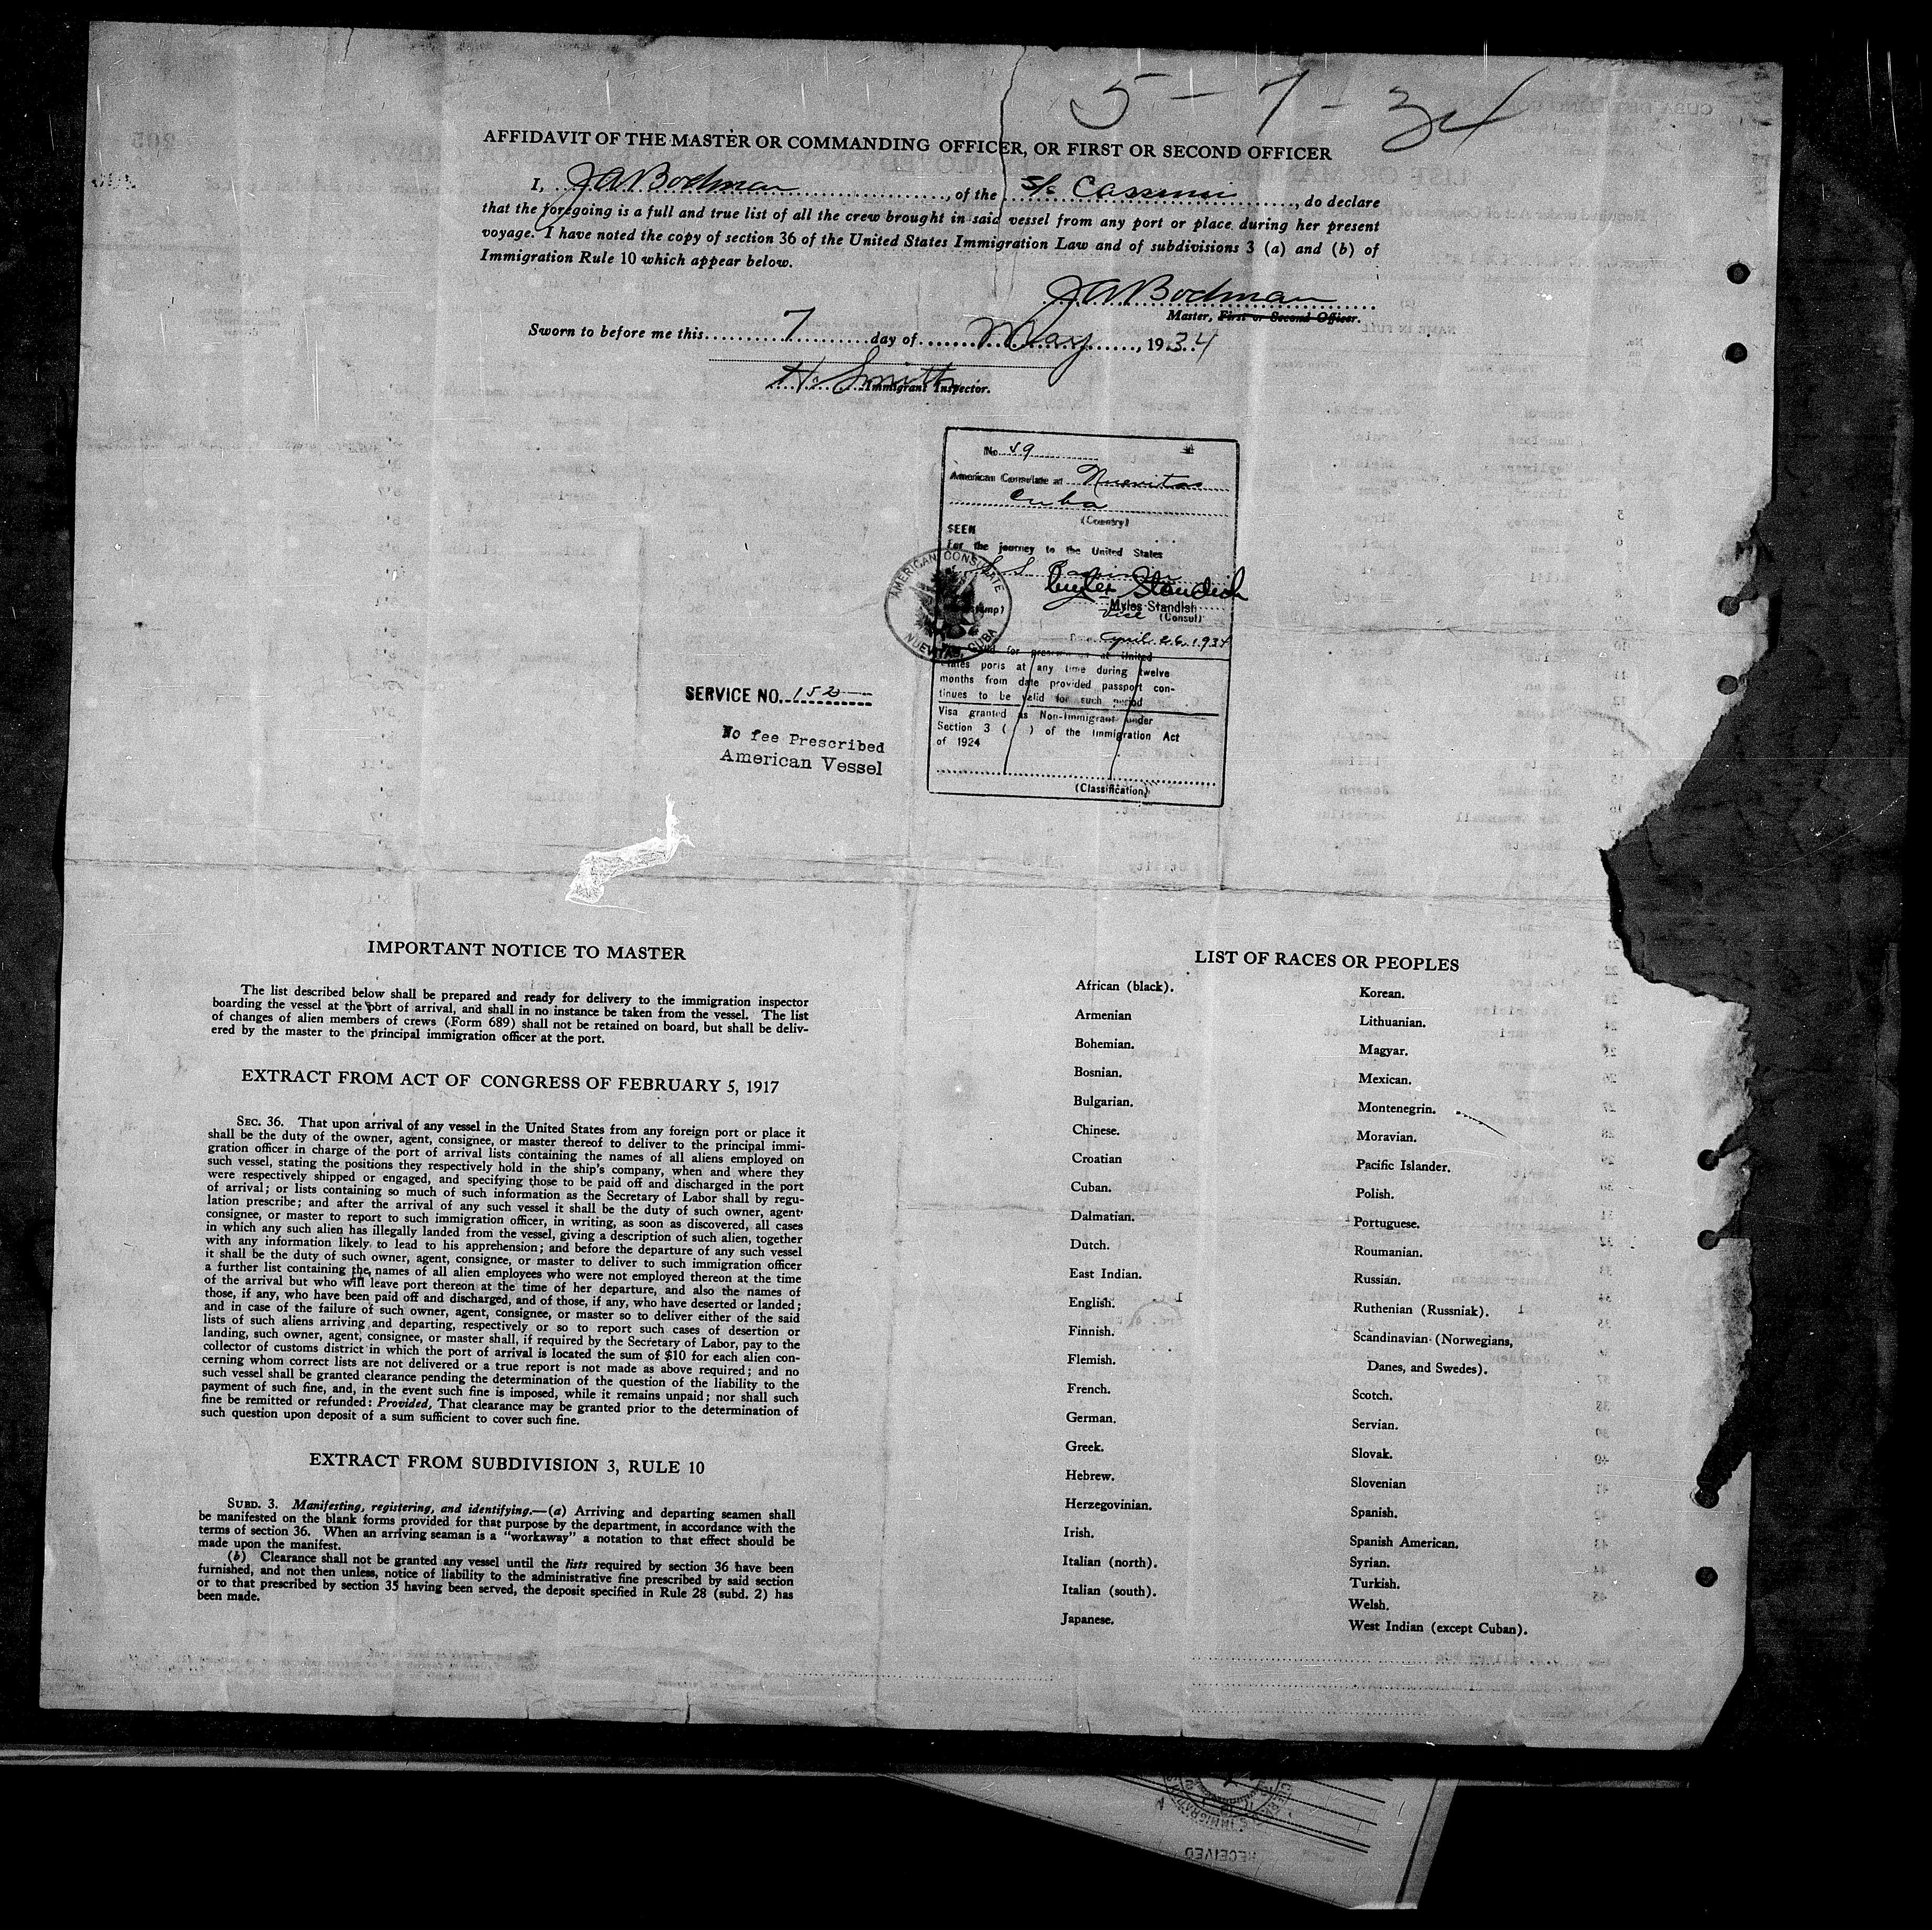 5-7-34
AFFIDAVIT OF THE MASTER OR COMMANDING OFFICER, OR FIRST OR SECOND OFFICER
I, JABodman, of the S/S Cassimir, do declare
that the foregoing is a full and true list of all the crew brought in said vessel from any port or place during her present
voyage. I have noted the copy of section 36 of the United States Immigration Law and of subdivisions 3 (a) and (b) of
Immigration Rule 10 which appear below.
JABodman
Master, First or Second Officer.
Sworn to before me this 7 day of May, 1934
H. Smith
Immigrant Inspector.
No. 59
American Consulate at Nuevitas
Cuba
(Country)
SEEN
For the journey to the United States
S S
Myles Standish
Myles Standish
Vice (Consul)
April 26, 1934
AMERICAN CONSULATE
NUEVITAS, CUBA
for at United
States ports at any time during twelve
months from date provided passport con-
tinues to be valid for such period
Visa granted as Non-Immigrant under
Section 3 ( ) of the Immigration Act
of 1924
(Classification)
SERVICE NO. 152
No fee Prescribed
American Vessel
IMPORTANT NOTICE TO MASTER
The list described below shall be prepared and ready for delivery to the immigration inspector
boarding the vessel at the port of arrival, and shall in no instance be taken from the vessel. The list
of changes of alien members of crews (Form 689) shall not be retained on board, but shall be deliv-
ered by the master to the principal immigration officer at the port.
EXTRACT FROM ACT OF CONGRESS OF FEBRUARY 5, 1917
SEC. 36. That upon arrival of any vessel in the United States from any foreign port or place it
shall be the duty of the owner, agent, consignee, or master thereof to deliver to the principal immi-
gration officer in charge of the port of arrival lists containing the names of all aliens employed on
such vessel, stating the positions they respectively hold in the ship's company, when and where they
were respectively shipped or engaged, and specifying those to be paid off and discharged in the port
of arrival; or lists containing so much of such information as the Secretary of Labor shall by regu-
lation prescribe; and after the arrival of any such vessel it shall be the duty of such owner, agent,
consignee, or master to report to such immigration officer, in writing, as soon as discovered, all cases
in which any such alien has illegally landed from the vessel, giving a description of such alien, together
with any information likely to lead to his apprehension; and before the departure of any such vessel
it shall be the duty of such owner, agent, consignee, or master to deliver to such immigration officer
a further list containing the names of all alien employees who were not employed thereon at the time
of the arrival but who will leave port thereon at the time of her departure, and also the names of
those, if any, who have been paid off and discharged, and of those, if any, who have deserted or landed;
and in case of the failure of such owner, agent, consignee, or master so to deliver either of the said
lists of such aliens arriving and departing, respectively or so to report such cases of desertion or
landing, such owner, agent, consignee, or master shall, if required by the Secretary of Labor, pay to the
collector of customs district in which the port of arrival is located the sum of $10 for each alien con-
cerning whom correct lists are not delivered or a true report is not made as above required; and no
such vessel shall be granted clearance pending the determination of the question of the liability to the
payment of such fine, and, in the event such fine is imposed, while it remains unpaid; nor shall such
fine be remitted or refunded: Provided, That clearance may be granted prior to the determination of
such question upon deposit of a sum sufficient to cover such fine.
EXTRACT FROM SUBDIVISION 3, RULE 10
SUBD. 3. Manifesting, registering, and identifying.—(a) Arriving and departing seamen shall
be manifested on the blank forms provided for that purpose by the department, in accordance with the
terms of section 36. When an arriving seaman is a "workaway" a notation to that effect should be
made upon the manifest.
(b) Clearance shall not be granted any vessel until the lists required by section 36 have been
furnished, and not then unless, notice of liability to the administrative fine prescribed by said section
or to that prescribed by section 35 having been served, the deposit specified in Rule 28 (subd. 2) has
been made.
LIST OF RACES OR PEOPLES
African (black).
Armenian
Bohemian.
Bosnian.
Bulgarian.
Chinese.
Croatian
Cuban.
Dalmatian.
Dutch.
East Indian.
English.
Finnish.
Flemish.
French.
German.
Greek.
Hebrew.
Herzegovinian.
Irish.
Italian (north).
Italian (south).
Japanese.
Korean.
Lithuanian.
Magyar.
Mexican.
Montenegrin.
Moravian.
Pacific Islander.
Polish.
Portuguese.
Roumanian.
Russian.
Ruthenian (Russniak).
Scandinavian (Norwegians,
Danes, and Swedes).
Scotch.
Servian.
Slovak.
Slovenian
Spanish.
Spanish American.
Syrian.
Turkish.
Welsh.
West Indian (except Cuban).
RECEIVED